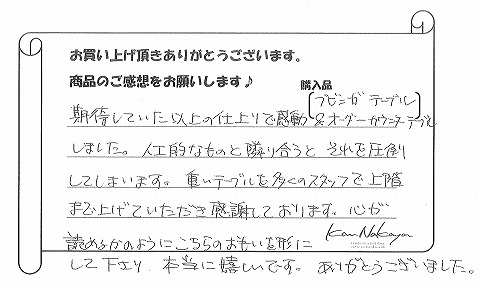 お買い上げ頂きありがとうございます。
商品のご感想をお願いします♪
購入品
ブビンガ テーブル
&オーダーカウンターテーブル
期待していた以上の仕上りで感動
しました。人工的なものと隣り合うと それを圧倒
してしまいます。重いテーブルを多くのスタッフで上階
まで上げていただき感謝しております。心が
読めるかのようにこちらのおもいを形に
して下さり、本当に嬉しいです。ありがとうございました。